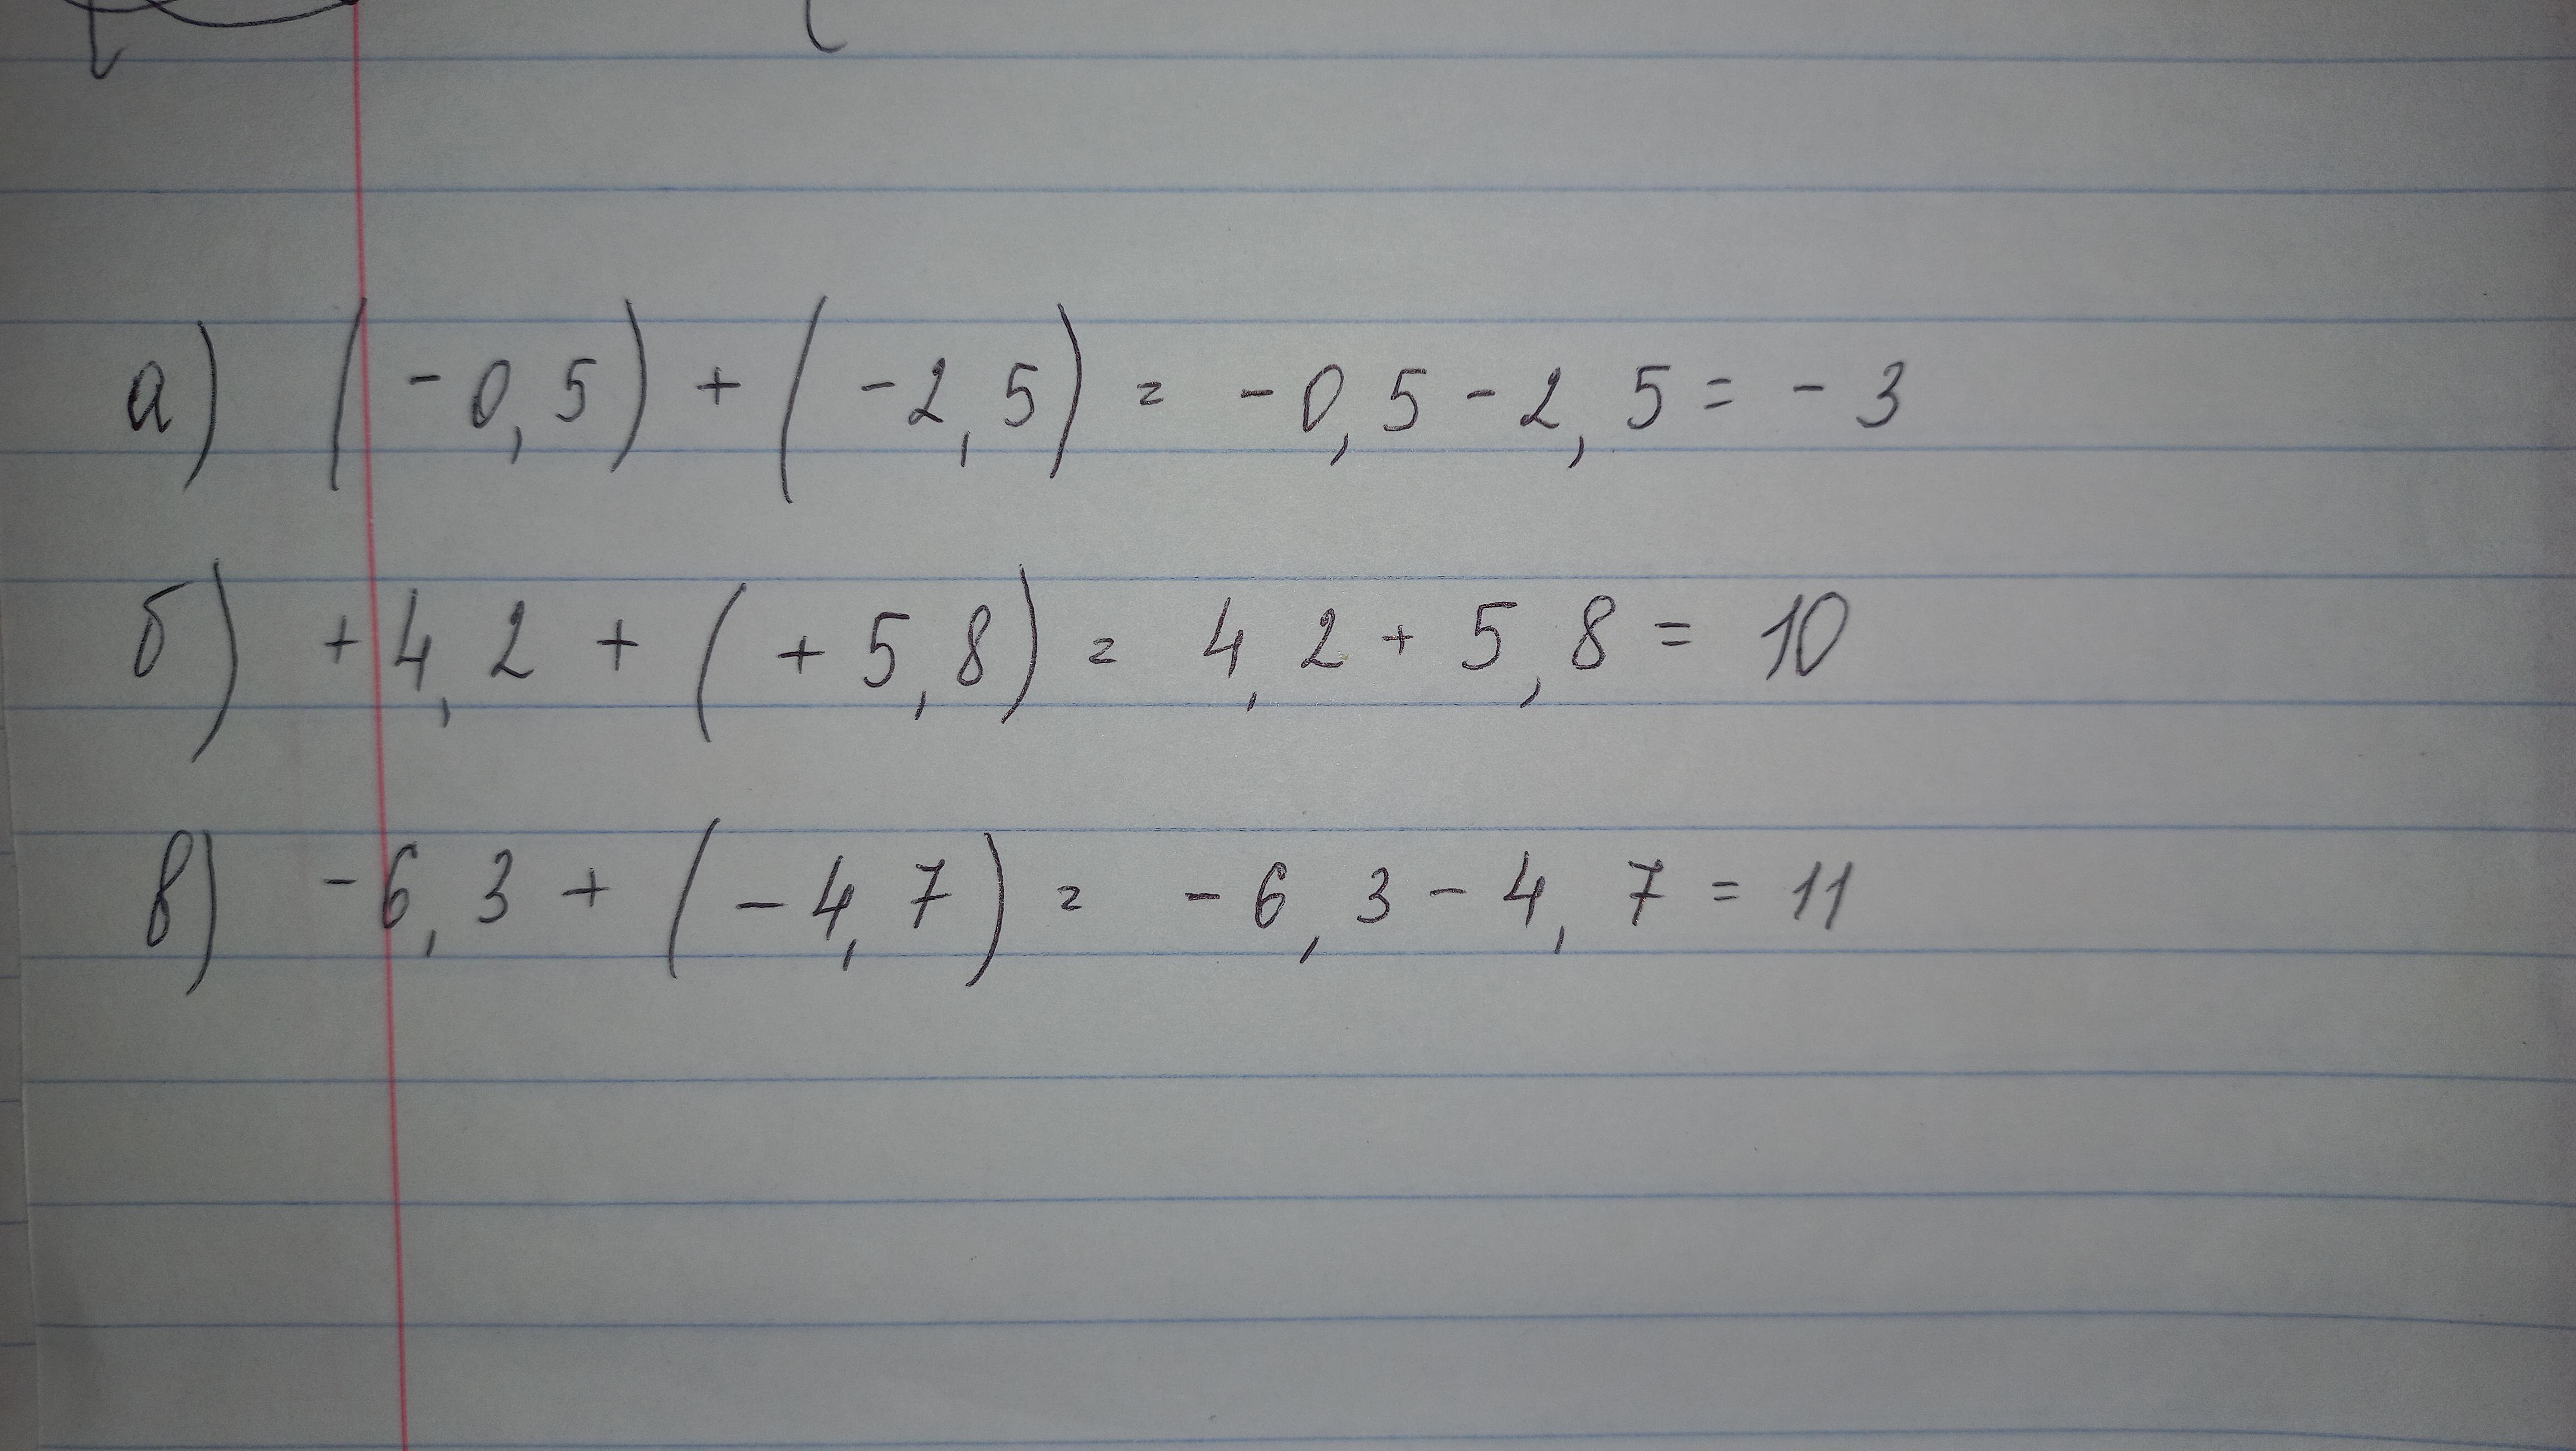 а) (-0,5) + (-2,5) = -0,5 - 2,5 = -3
б) +4,2 + (+5,8) = 4,2 + 5,8 = 10
в) -6,3 + (-4,7) = -6,3 - 4,7 = 11